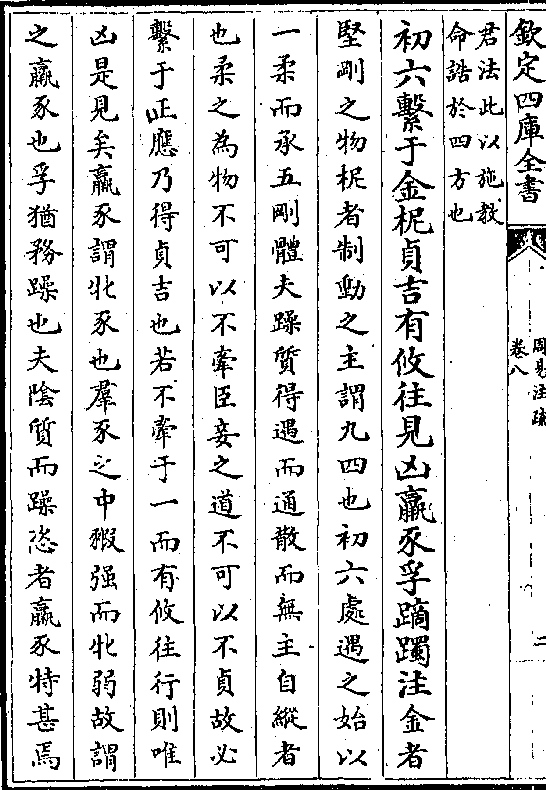 欽定四庫全書
周易注疏
卷八
二
君法此以施教
命誥於四方也
初六繫于金柅貞吉有攸往見凶羸豕孚蹢躅注金者
堅剛之物柅者制動之主謂九四也初六處遇之始以
一柔而承五剛體夫躁質得遇而通散而無主自縱者
也柔之為物不可以不牽臣妾之道不可以不貞故必
繫于正應乃得貞吉也若不牽于一而有攸往行則唯
凶是見矣羸豕謂牝豕也羣豕之中豭强而牝弱故謂
之羸豕也孚猶務躁也夫陰質而躁恣者羸豕特甚焉